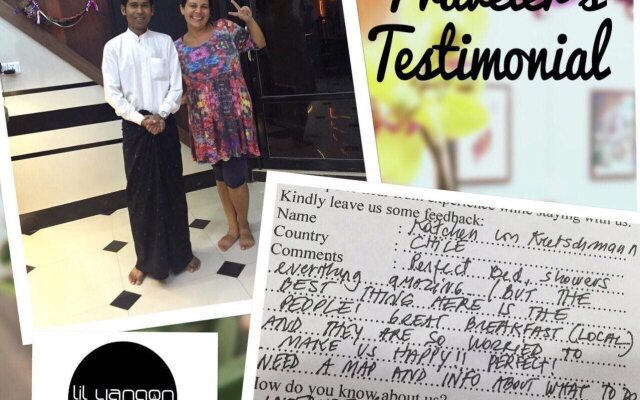 Traveler's
Testimonial
experience while staying with us.
Kindly leave us some feedback:
Name : Kätchen von Kretschmann
Country : CHILE
Comments : Perfect bed, showers
everthing amazing! BUT THE
BEST THING HERE IS THE
PEOPLE! GREAT BREAKFAST (LOCAL)
AND THEY ARE SO WORRIED TO
MAKE US HAPPY!! PERFECT!
NEED A MAP AND INFO ABOUT WHAT TO DO
How do you know about us?
lil yangon